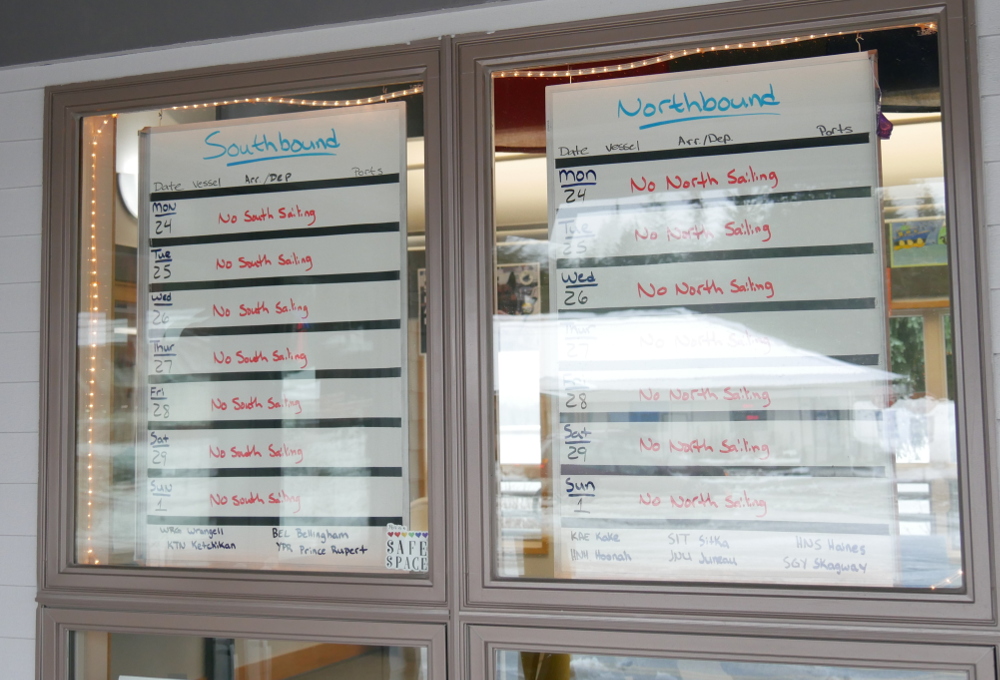 Southbound
Date Vessel Arr./Dep Ports
Mon
24
No South Sailing
Tue
25
No South Sailing
Wed
26
No South Sailing
Thur
27
No South Sailing
Fri
28
No South Sailing
Sat
29
No South Sailing
Sun
1
No South Sailing
Wrangell BEL Bellingham
KTN Ketchikan YPR Prince Rupert
SAFE
SPACE
Northbound
Date Vessel Arr./Dep. Ports
Mon
24
No North Sailing
Tue
25
No North Sailing
Wed
26
No North Sailing
Thur
27
No North Sailing
Fri
28
No North Sailing
Sat
29
No North Sailing
Sun
1
No North Sailing
KAE Kake SIT Sitka HNS Haines
Hoonah JNU Juneau SGY Skagway